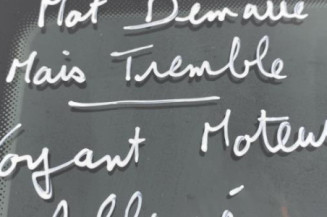 Mot Demarre
Mais Tremble
oyant Moteu